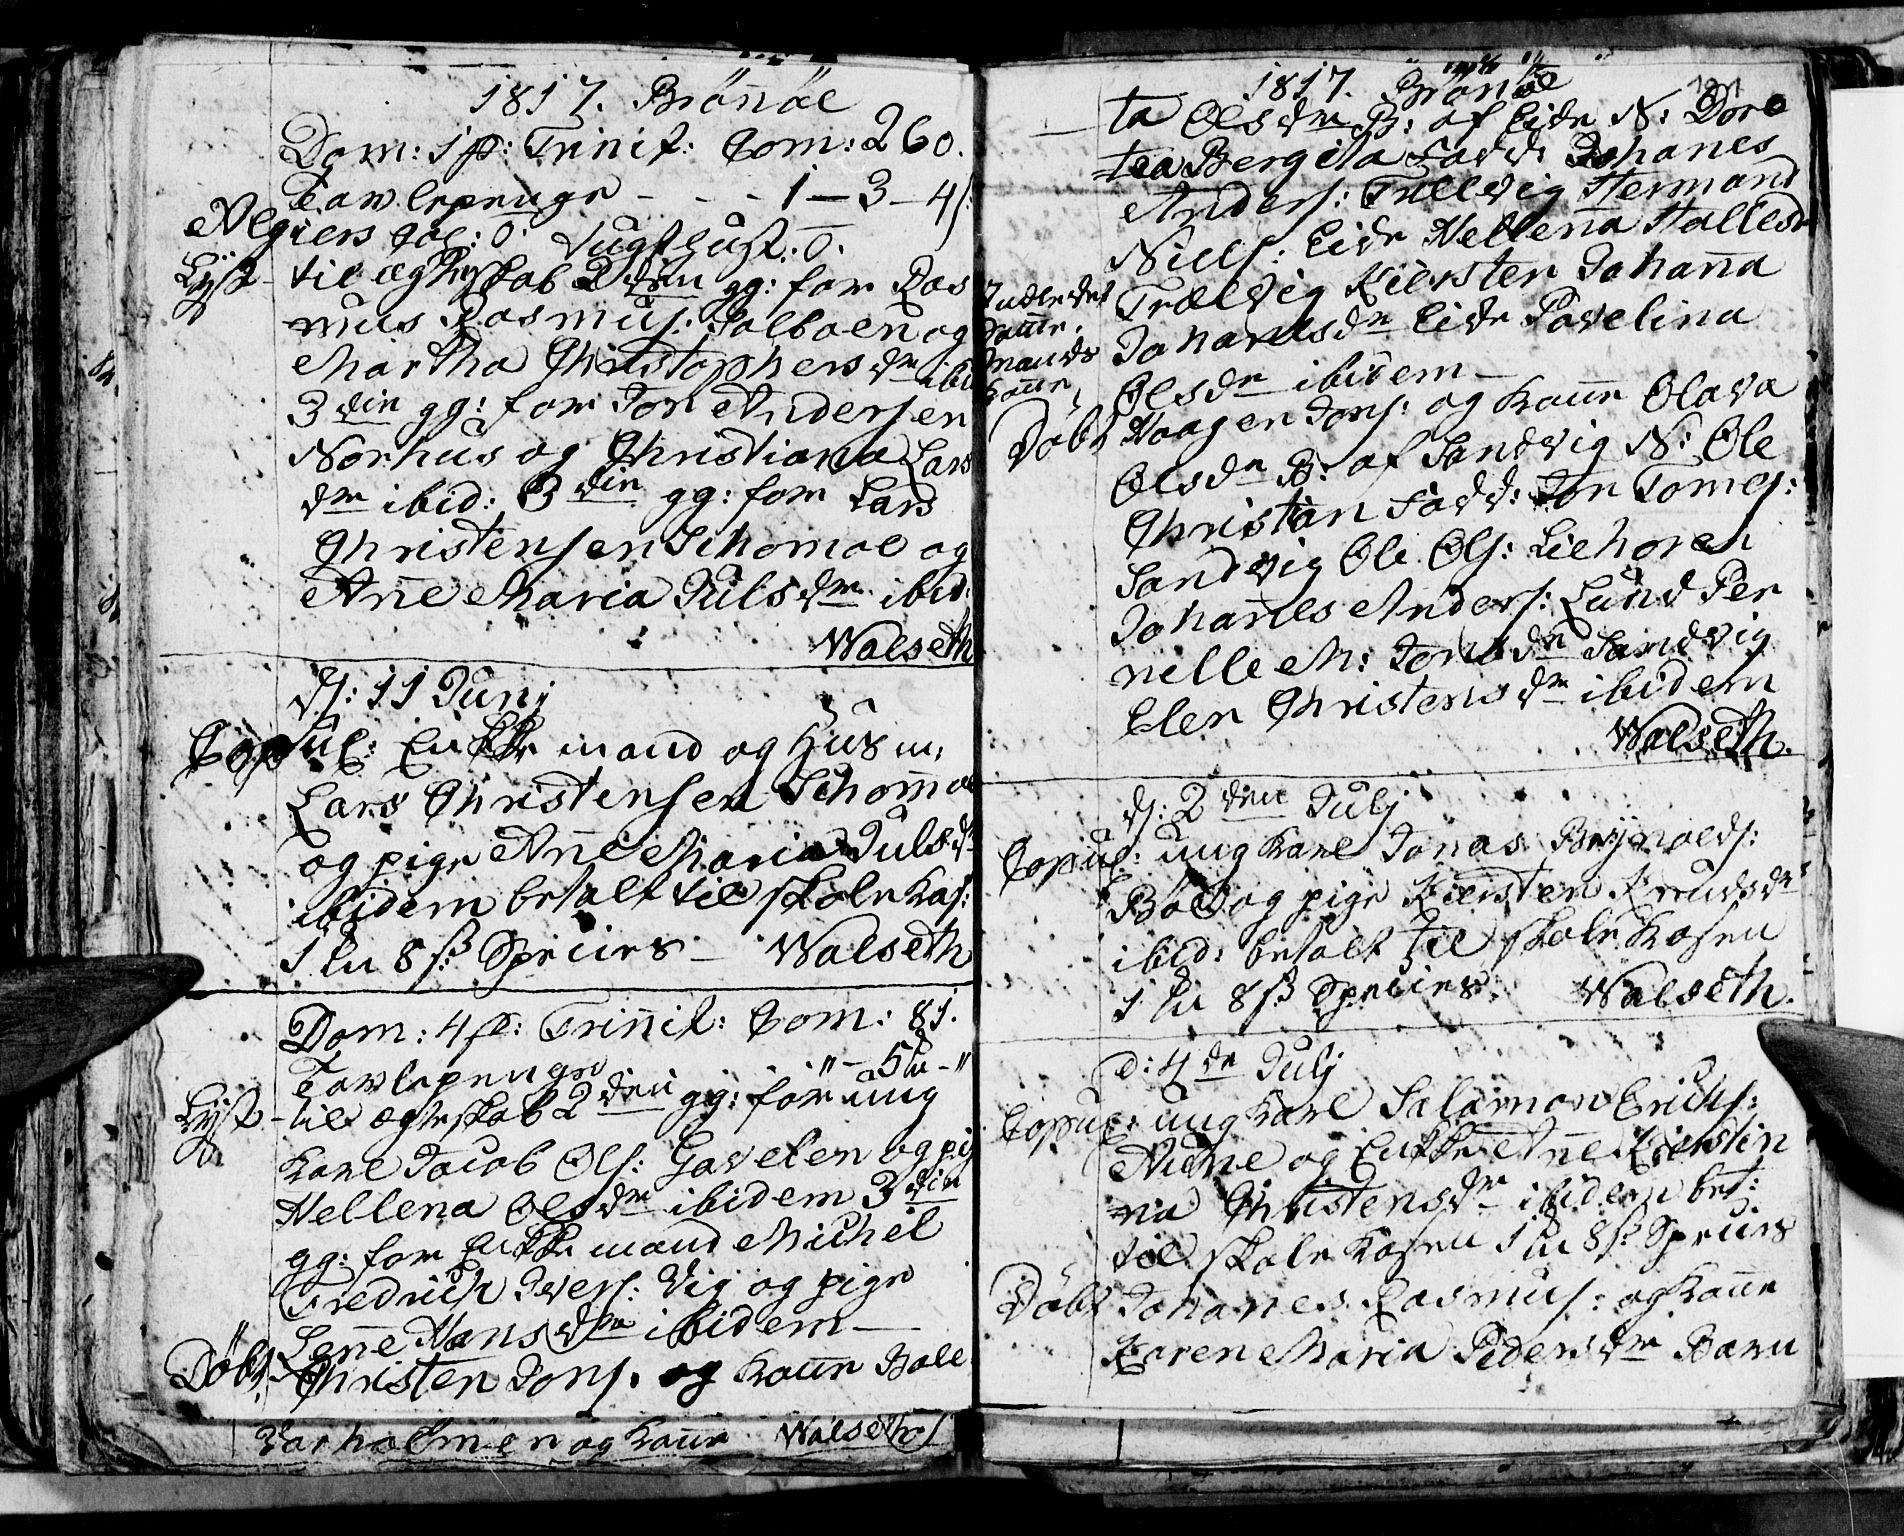 1817. Brönöe
Dom: 1 p: Trinit: Com: 260.
Tavlepenge - - - 1 - 3 - 4 s:
Algiers Col: 0. Tugthust: 0.
Lyst til ægteskab 2den gg: for Ras
mus Rasmus: Solboen og
Martha Christophersdr ibid
3din gg: for Jon Andersen
Norhus og Christiana Lars
dr ibid: 3din gg: for Lars
Christensen Schomoe og
Anne Maria Julsdr ibid:
Walseth
d: 11 Junj
Copul: Enkkemand og Husm:
Lars Christensen Schomoe
og pige Anne Maria Julsdr
ibidem betalt til skole Kas:
1 8 s: Species - Walseth
Dom: 4 p: Trinit: Com: 81.
Tavlepenge " - 5 - "
Lyst til ægteskab 2den gg: for ung
Karl Jacob Ols: Gavelen og pig
Hellena Olsdr ibidem 3din
gg: for Enkkemand Michel
Fredrich Ivers: Vig og pige
Lene Hansdr ibidem -
Döbt Christen Jons. og Kone Bole
Varholmen og Kone Walseth
1817. Brönöe
191
ta Olsdr B: af Eide N: Dore
tea Bergita Fadd: Johanes
Anders: Trælvig Hermand
Niels: Eide Hellena Hallesdr
Trælvig Kiersten Johanna
Johanesdr Eide Pavelina
Olsdr ibidem -
Inledet
Konne
Döbt Haagen Jons: og Kone Olava
Olsdr B: af Sandvig N: Ole
Christian Fadd: Jon Tomes:
Sandvig Ole Ols: Liehoren
Johanes Anders: Lund Per
nille M: Jonsdr Sandvig
Elen Christensdr ibidem
Walseth.
d: 2den Julj
Copul: ung Karl Jonas Brynolds:
Böe og pige Kiersten Knudsdr
ibid: betalt til skole Kasen
1 8 s: Species. Walseth.
d: 4de Julj
Copul: ung Karl Salamon Erichs:
Aune og Enkke Ane Kierstin
na Christensdr ibidem bet:
til skole Kasen 1 8 s: Species
Döbt Johanes Rasmus: og Kone
Karen Maria Pedersdr Barn